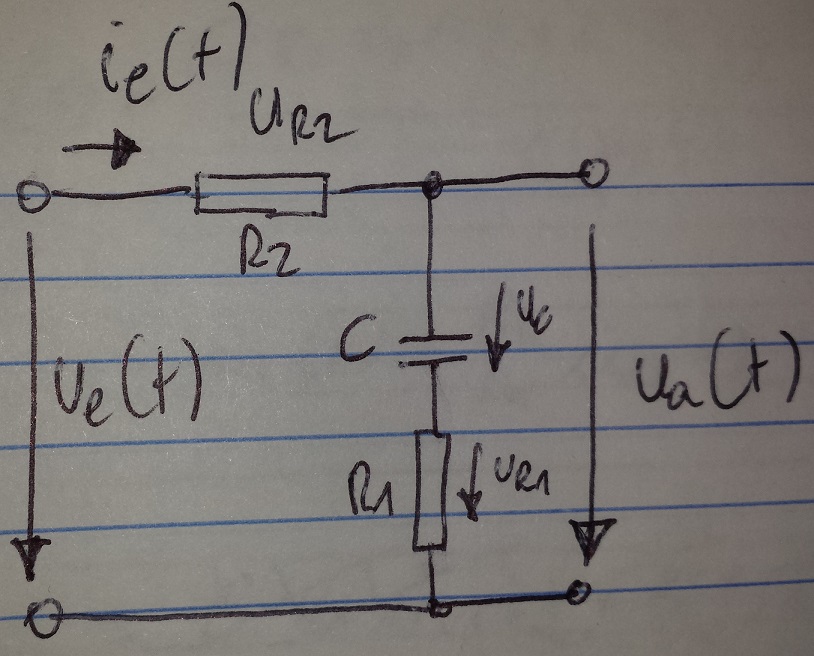 ie(t)
UR2
R2
C
uc
ue(t)
ua(t)
R1
uR1